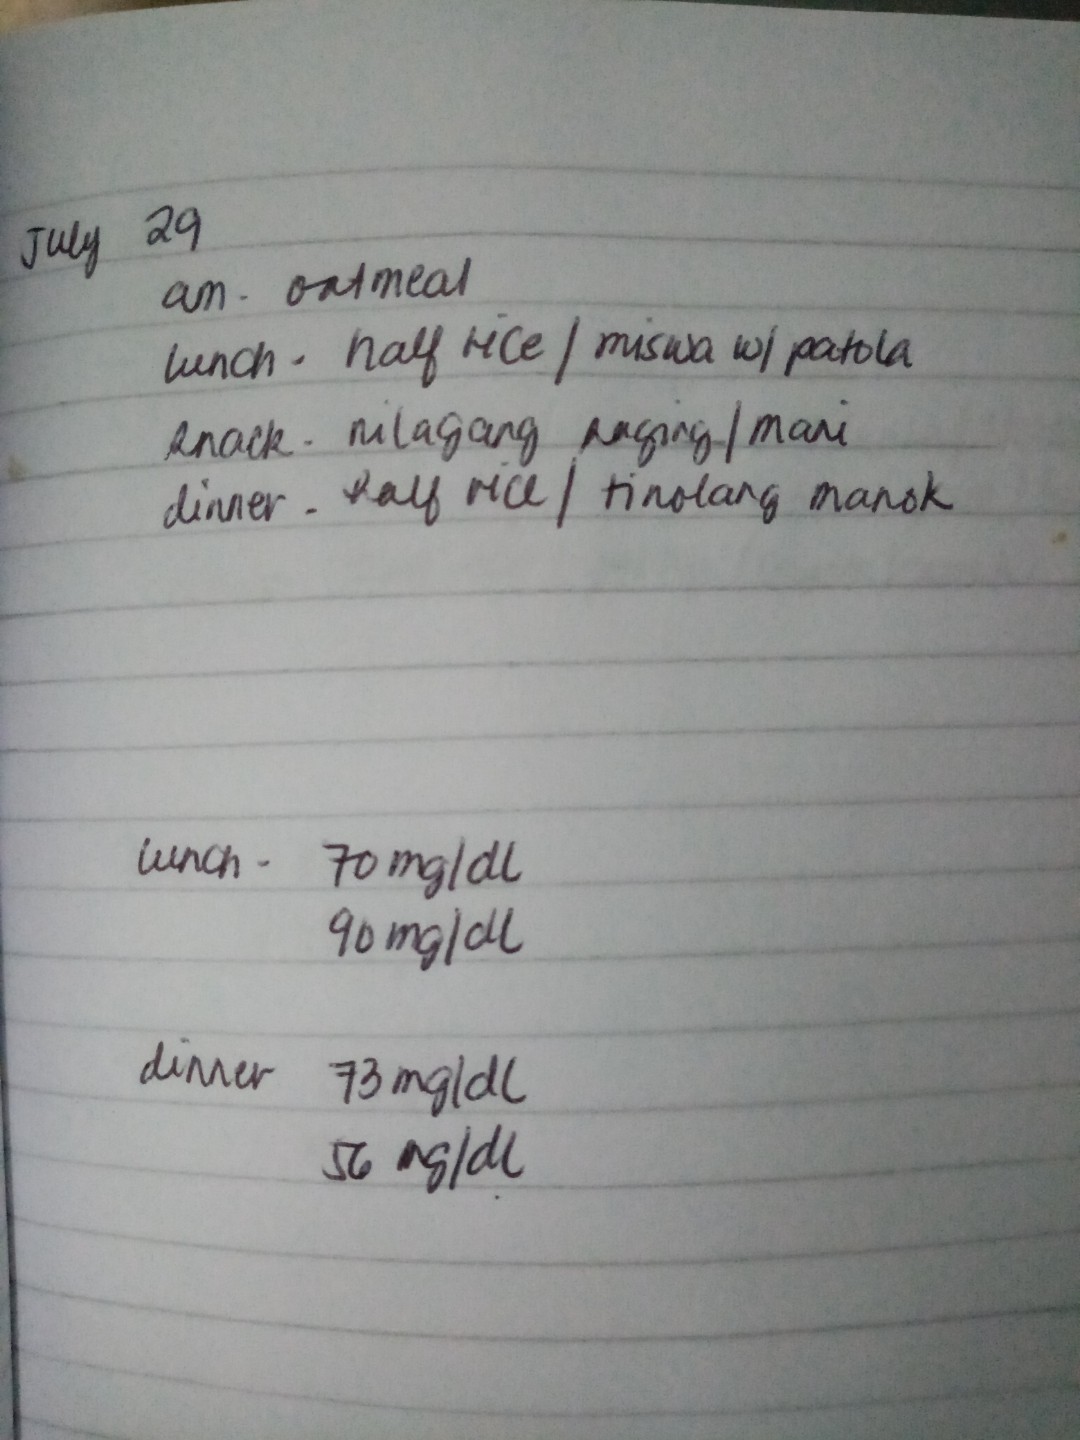 July 29
am - oatmeal
lunch - half rice / miswa w/ patola
snack - nilagang saging / mani
dinner - half rice / tinolang manok
lunch - 70 mg/dl
90 mg/dl
dinner 73 mg/dl
56 mg/dl